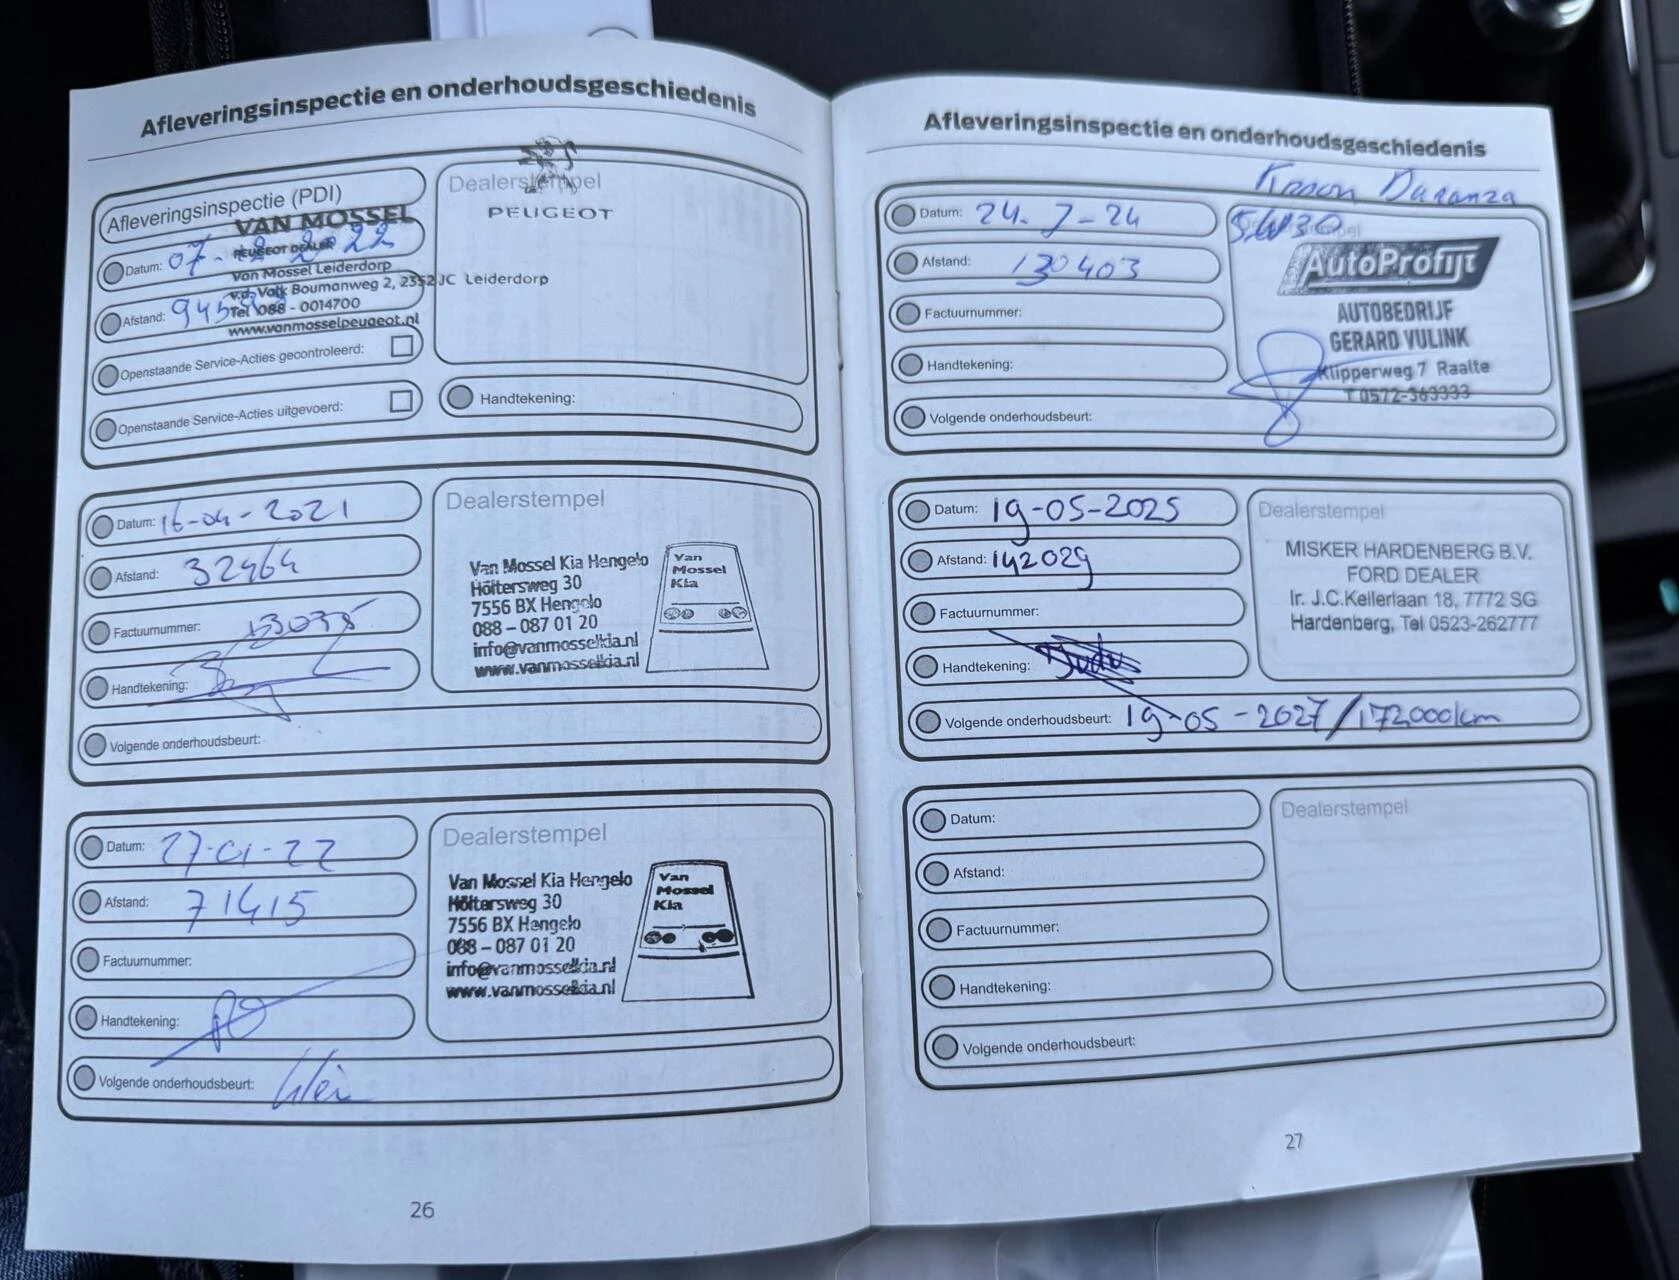 Afleveringsinspectie en onderhoudsgeschiedenis
Afleveringsinspectie (PDI)
VAN MOSSEL
PEUGEOT DEALER
Van Mossel Leiderdorp
v.d. Valk Boumanweg 2, 2352 JC Leiderdorp
Tel 088 - 0014700
www.vanmosselpeugeot.nl
Datum: 07-12-2022
Afstand:
Openstaande Service-Acties gecontroleerd:
Openstaande Service-Acties uitgevoerd:
Dealerstempel
PEUGEOT
Handtekening:
Datum: 16-04-2021
Afstand: 32464
Factuurnummer:
Handtekening:
Volgende onderhoudsbeurt:
Dealerstempel
Van Mossel Kia Hengelo
Höltersweg 30
7556 BX Hengelo
088 – 087 01 20
info@vanmosselkia.nl
www.vanmosselkia.nl
Van
Mossel
Kia
Datum: 27-01-22
Afstand: 71415
Factuurnummer:
Handtekening:
Volgende onderhoudsbeurt:
Dealerstempel
Van Mossel Kia Hengelo
Höltersweg 30
7556 BX Hengelo
088 – 087 01 20
info@vanmosselkia.nl
www.vanmosselkia.nl
Van
Mossel
Kia
26
Afleveringsinspectie en onderhoudsgeschiedenis
Datum: 24-7-24
Afstand: 130403
Factuurnummer:
Handtekening:
Volgende onderhoudsbeurt:
5W30
Dealerstempel
AutoProfijt
AUTOBEDRIJF
GERARD VULINK
Klipperweg 7 Raalte
T 0572-363333
Datum: 19-05-2025
Afstand: 142029
Factuurnummer:
Handtekening:
Volgende onderhoudsbeurt: 19-05-2027/172000km
Dealerstempel
MISKER HARDENBERG B.V.
FORD DEALER
Ir. J.C.Kellerlaan 18, 7772 SG
Hardenberg, Tel 0523-262777
Datum:
Afstand:
Factuurnummer:
Handtekening:
Volgende onderhoudsbeurt:
Dealerstempel
27